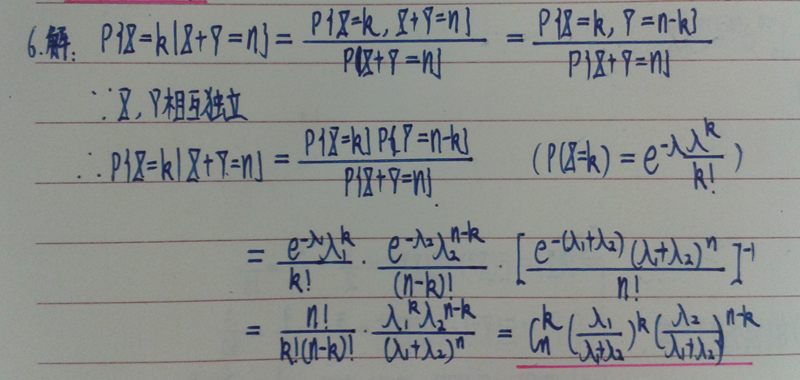 6.解: P{X=k|X+Y=n} = P{X=k, X+Y=n} / P{X+Y=n} = P{X=k, Y=n-k} / P{X+Y=n}
∵X, Y相互独立
∴P{X=k|X+Y=n} = P{X=k}P{Y=n-k} / P{X+Y=n} (P(X=k) = e^{-λ}λ^k / k!)
= e^{-λ₁}λ₁^k / k! · e^{-λ₂}λ₂^{n-k} / (n-k)! · [e^{-(λ₁+λ₂)}(λ₁+λ₂)^n / n!]^{-1}
= n! / k!(n-k)! · λ₁^k λ₂^{n-k} / (λ₁+λ₂)^n = C_n^k (λ₁ / λ₁+λ₂)^k (λ₂ / λ₁+λ₂)^{n-k}